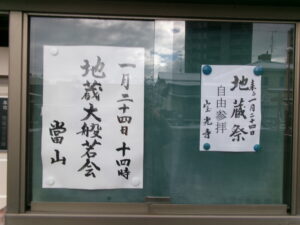 一月二十四日 十四時
地蔵大般若会
當山
来る一月二十四日
地蔵祭
自由参拝
宝光寺